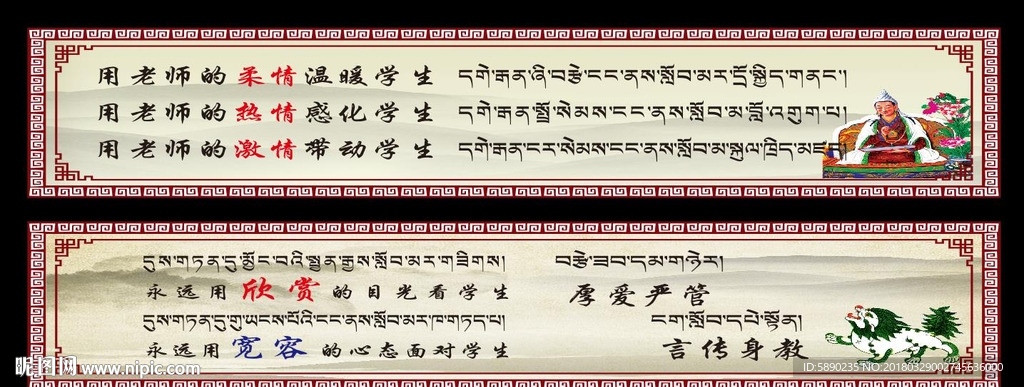 用老师的柔情温暖学生 དགེ་རྒན་ཞི་བརྩེ་ངང་ནས་སློབ་མར་དྲོ་སྐྱིད་གནང་།
用老师的热情感化学生 དགེ་རྒན་སྤྲོ་སེམས་ངང་ནས་སློབ་མ་བློ་འགུག་པ།
用老师的激情带动学生 དགེ་རྒན་ངར་སེམས་ངང་ནས་སློབ་མ་སྐུལ་ཁྲིད་མཛད
དུས་གཏན་དུ་མྱོང་བའི་སྤྱན་རྒྱས་སློབ་མར་གཟིགས། བརྩེ་ཟབ་དམ་གཉེར།
永远用欣赏的目光看学生 厚爱严管
དུས་གཏན་དུ་གུ་ཡངས་པོའི་ངང་ནས་སློབ་མར་ཁ་གཏད་པ། ངག་སློབ་དཔེ་སྟོན།
永远用宽容的心态面对学生 言传身教
昵图网 www.nipic.com
ID:5890235 NO:20180329002745636000